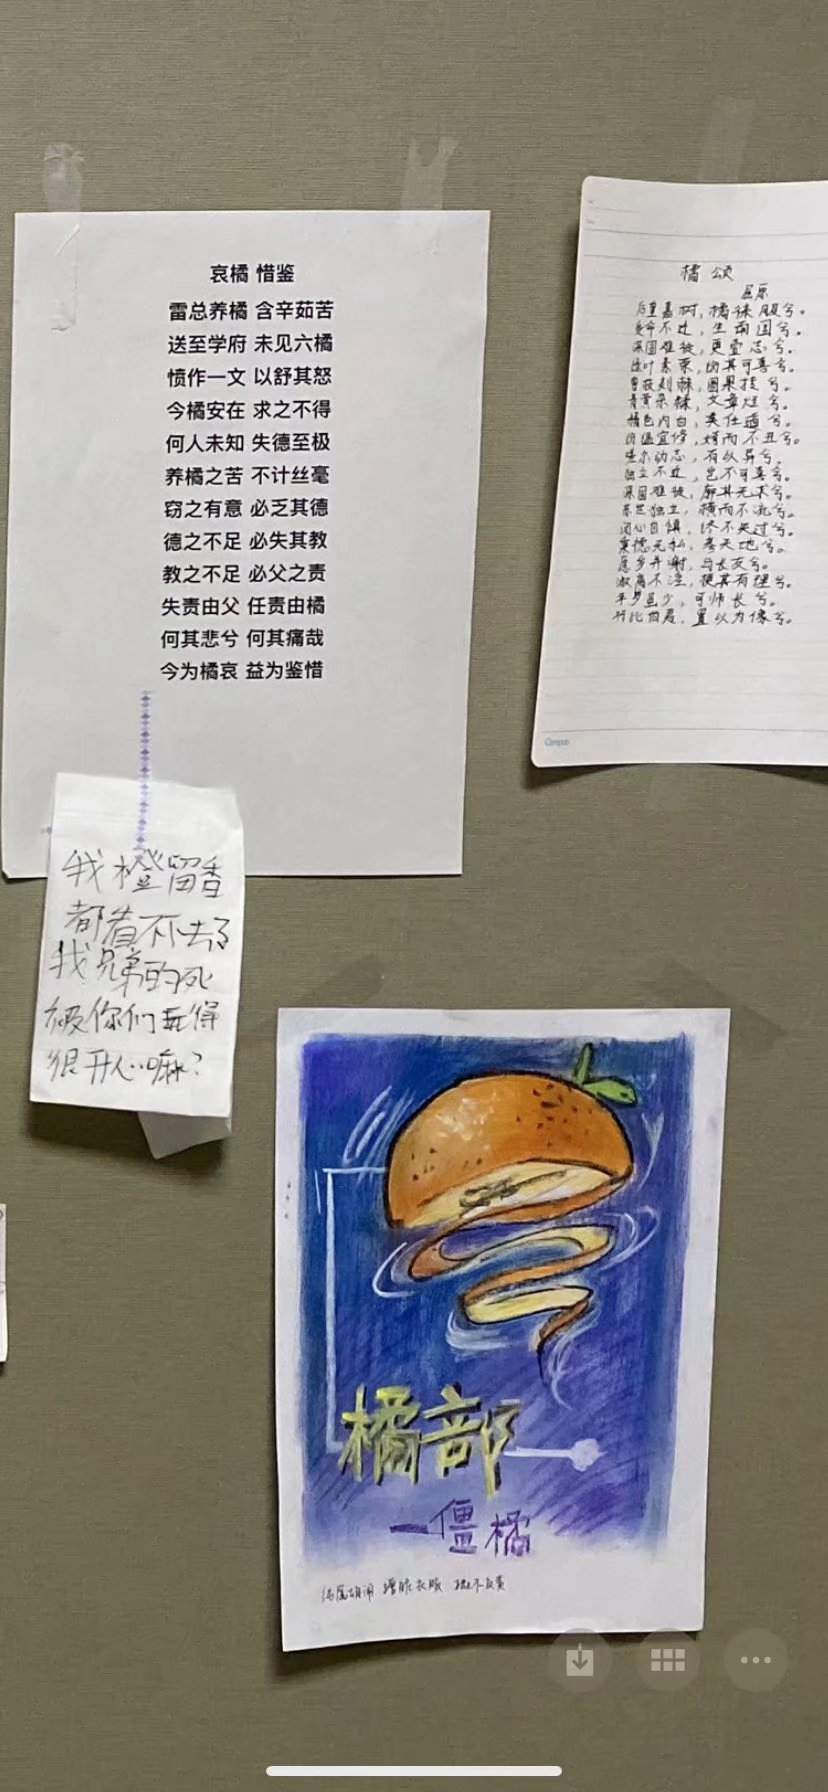 哀橘 惜鉴
雷总养橘 含辛茹苦
送至学府 未见六橘
愤作一文 以舒其怒
今橘安在 求之不得
何人未知 失德至极
养橘之苦 不计丝毫
窃之有意 必乏其德
德之不足 必失其教
教之不足 必父之责
失责由父 任责由橘
何其悲兮 何其痛哉
今为橘哀 益为鉴惜
我橙留香
都看不下去了
我兄弟的死
被你们玩得
很开心嘛?
橘颂
屈原
后皇嘉树,橘徕服兮。
受命不迁,生南国兮。
深固难徙,更壹志兮。
绿叶素荣,纷其可喜兮。
曾枝剡棘,圆果抟兮。
青黄杂糅,文章烂兮。
精色内白,类任道兮。
纷缊宜修,姱而不丑兮。
嗟尔幼志,有以异兮。
独立不迁,岂不可喜兮。
深固难徙,廓其无求兮。
苏世独立,横而不流兮。
闭心自慎,终不失过兮。
秉德无私,参天地兮。
愿岁并谢,与长友兮。
淑离不淫,梗其有理兮。
年岁虽少,可师长兮。
行比伯夷,置以为像兮。
Campus
橘部
一僵橘
纯属胡闹 蹭脏衣服 概不负责